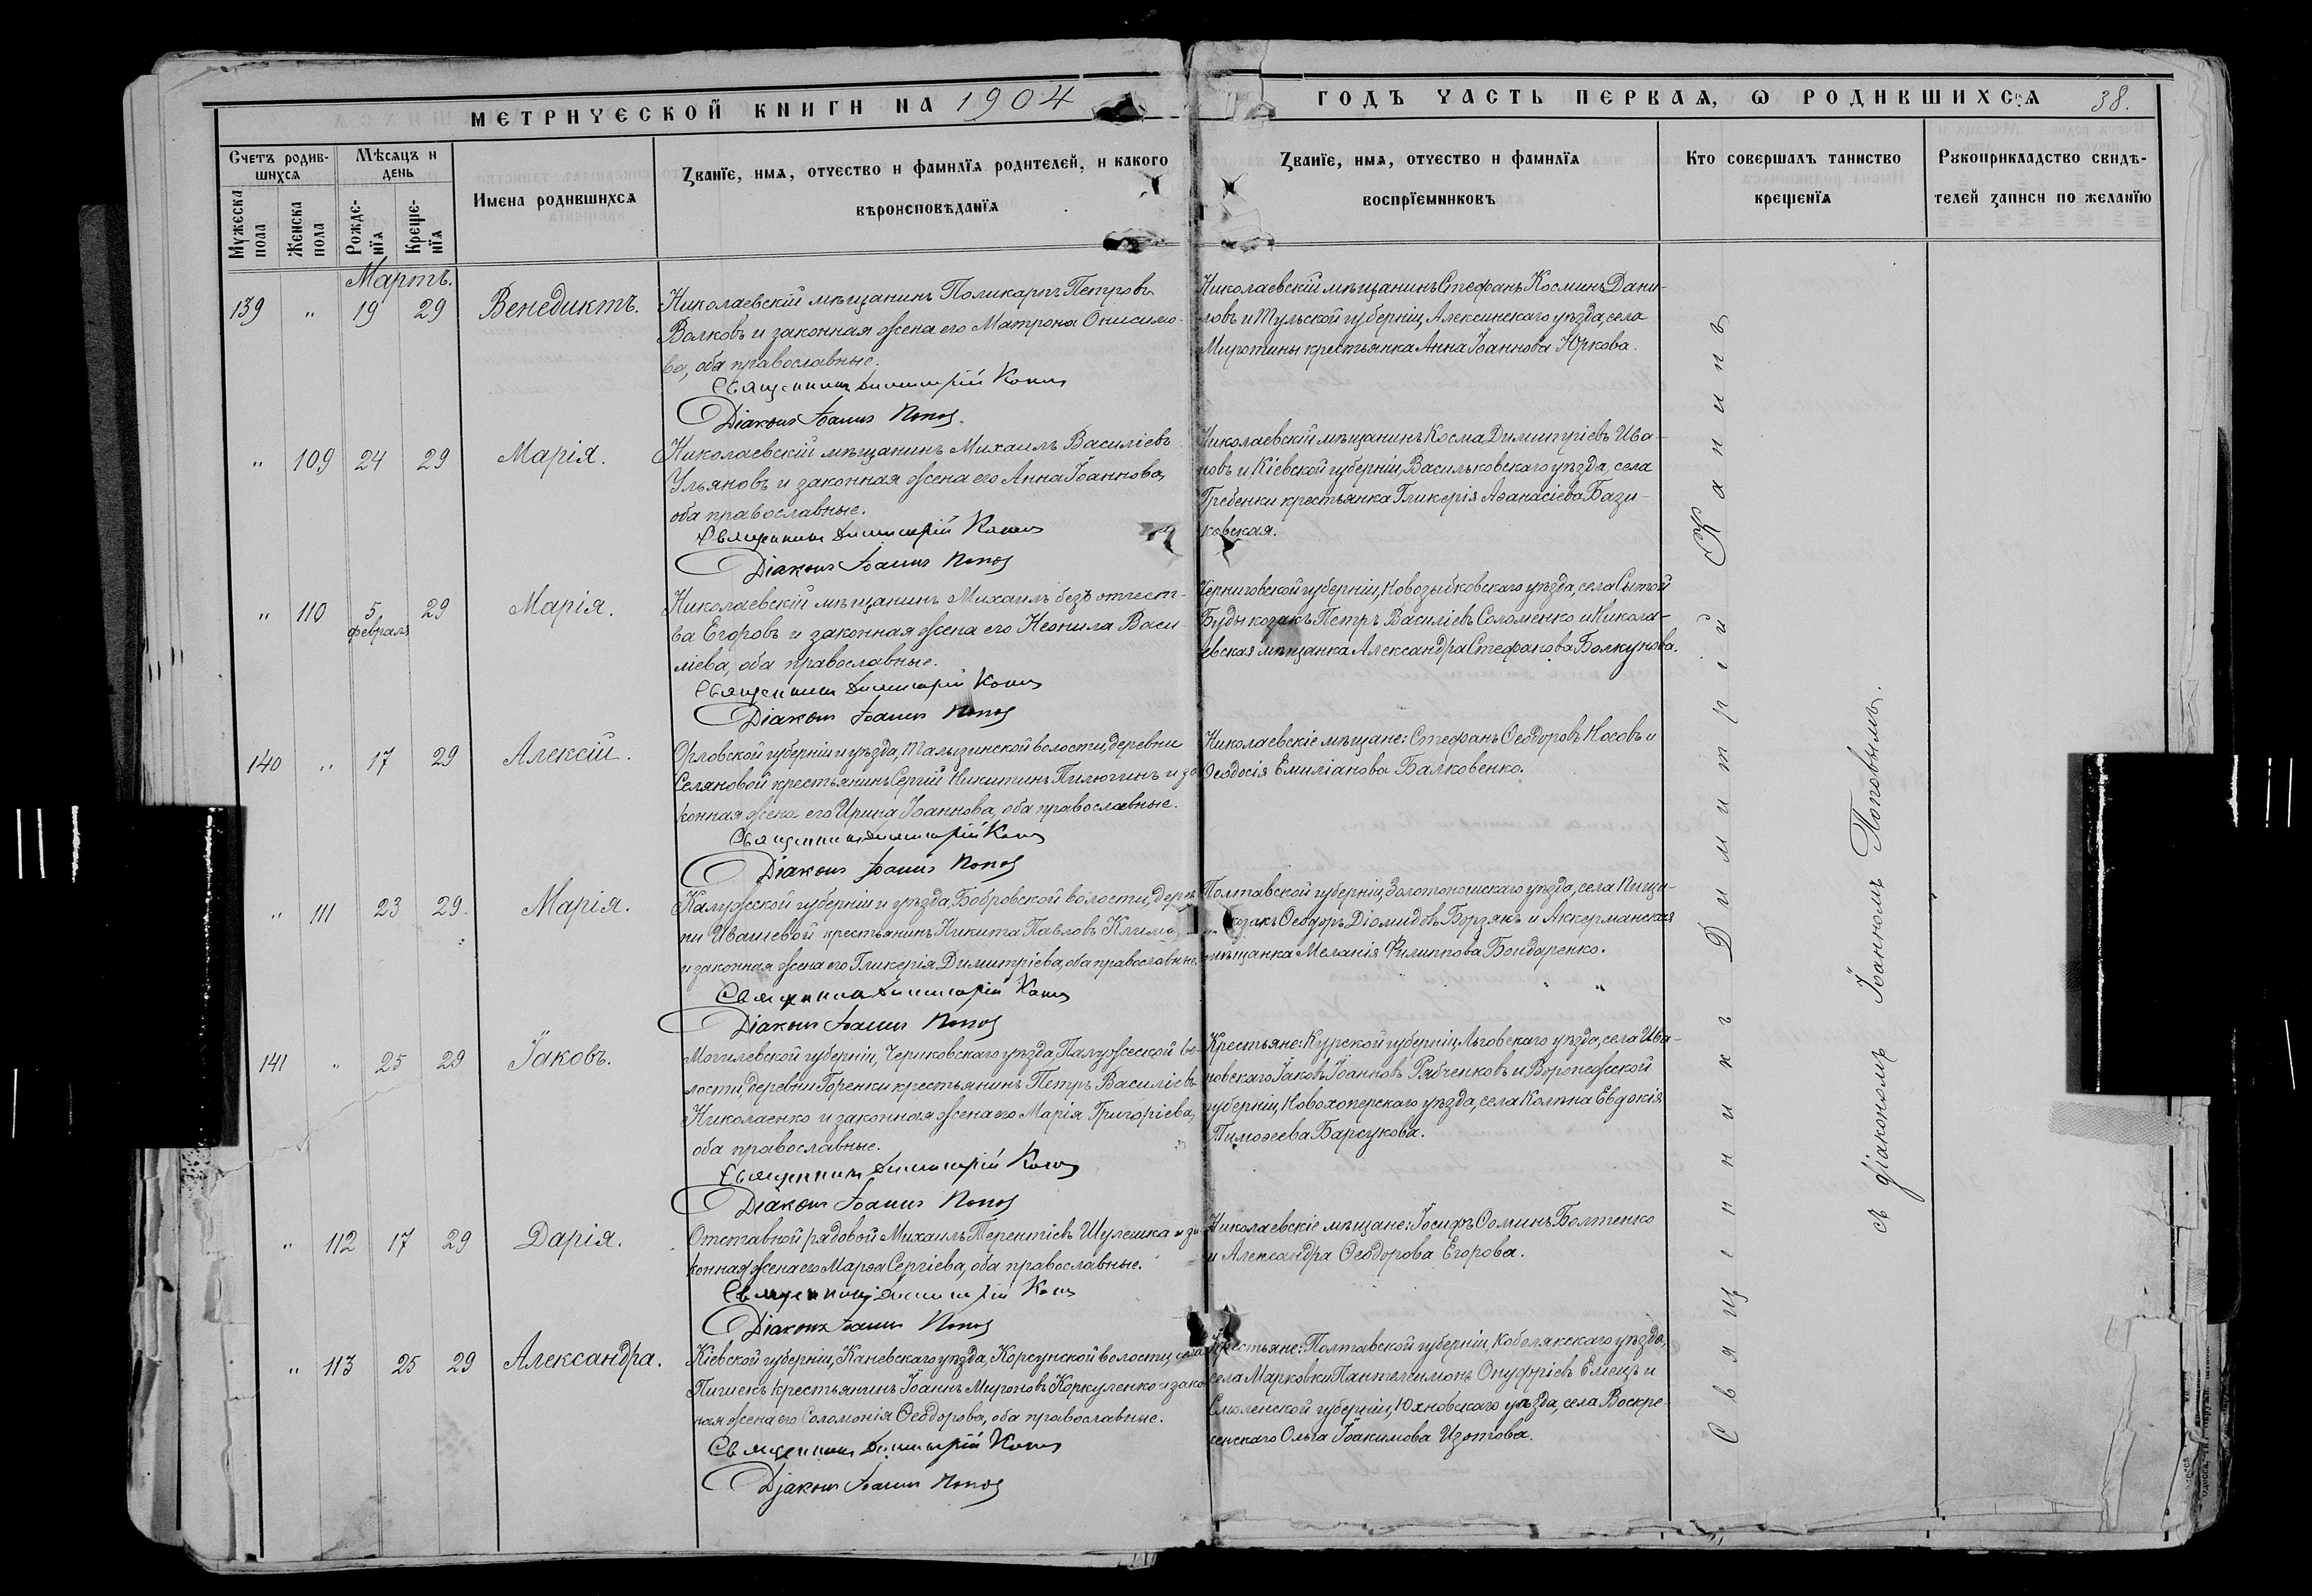 МЕТРИЧЕСКОЙ КНИГИ НА 1904
ГОДЪ ЧАСТЬ ПЕРВАЯ, Ѡ РОДИВШИХСЯ 38.
Счетъ родив-
шихся
Мѣсяцъ и
день
Мужеска
пола
Женска
пола
Рожде-
нїя
Креще-
нїя
Имена родившихся
Званїе, имя, отчество и фамилїя родителей, и какого
вѣроисповѣданїя
Званїе, имя, отчество и фамилїя
воспрїемниковъ
Кто совершалъ таинство
крещенїя
Рукоприкладство свидѣ-
телей записи по желанїю
Мартъ.
139 " 19 29 Венедиктъ.
Николаевскій мѣщанинъ Поликарпъ Петровъ
Волковъ и законная жена его Матрона Онисимо-
ва, оба православные.
Священникъ Димитрій Капинъ
Діаконъ Іоаннъ Поповъ
Николаевскій мѣщанинъ Стефанъ Косминъ Дани-
ловъ и Тульской губерніи, Алексинскаго уѣзда, села
Миротины крестьянка Анна Іоаннова Юркова.
" 109 24 29 Марія.
Николаевскій мѣщанинъ Михаилъ Василіевъ
Ульяновъ и законная жена его Анна Іоаннова,
оба православные.
Священникъ Димитрій Капинъ
Діаконъ Іоаннъ Поповъ
Николаевскій мѣщанинъ Косма Димитріевъ Ива-
новъ и Кіевской губерніи, Васильковскаго уѣзда, села
Гребенки крестьянка Гликерія Аѳанасіева Бази-
ковская.
" 110 5 29 Марія.
февраля
Николаевскій мѣщанинъ Михаилъ безъ отчест-
ва Егоровъ и законная жена его Неонила Васи-
ліева, оба православные.
Священникъ Димитрій Капинъ
Діаконъ Іоаннъ Поповъ
Черниговской губерніи, Новозыбковскаго уѣзда, села Сытой
Буды козакъ Петръ Василіевъ Соломенко и Никола-
евская мѣщанка Александра Стефанова Болкунова.
140 " 17 29 Алексій.
Орловской губерніи и уѣзда, Талызинской волости, деревни
Селяновой крестьянинъ Сергій Никитинъ Пилюгинъ и за-
конная жена его Ирина Іоаннова, оба православные.
Священникъ Димитрій Капинъ
Діаконъ Іоаннъ Поповъ
Николаевскіе мѣщане: Стефанъ Ѳеодоровъ Носовъ и
Ѳеодосія Емиліанова Балковенко.
" 111 23 29. Марія.
Калужской губерніи и уѣзда, Бобровской волости, дерев-
ни Ивашевой крестьянинъ Никита Павловъ
и законная жена его Гликерія Димитріева, оба православные.
Священникъ Димитрій Капинъ
Діаконъ Іоаннъ Поповъ
Полтавской губерніи, Золотоношскаго уѣзда, села
козакъ Ѳеодоръ Діомидовъ Борзякъ и Аккерманская
мѣщанка Меланія Филиппова Бондаренко.
141 " 25 29 Іаковъ.
Могилевской губерніи, Чериковскаго уѣзда, Палужской во-
лости, деревни Горенки крестьянинъ Петръ Василіевъ
Николаенко и законная жена его Марія Григоріева,
оба православные.
Священникъ Димитрій Капинъ
Діаконъ Іоаннъ Поповъ
Крестьяне: Курской губерніи, Льговскаго уѣзда, села Ива-
новскаго Іаковъ Іоанновъ Рябченковъ и Воронежской
губерніи, Новохоперскаго уѣзда, села Колѣна Евдокія
Тимоѳеева Барсукова.
" 112 17 29 Дарія.
Отставной рядовой Михаилъ Терентіевъ Шулешка и за-
конная жена его Марѳа Сергіева, оба православные.
Священникъ Димитрій Капинъ
Діаконъ Іоаннъ Поповъ
Николаевскіе мѣщане: Іосифъ Ѳоминъ Болтенко
и Александра Ѳеодорова Егорова.
" 113 25 29 Александра.
Кіевской губерніи, Каневскаго уѣзда, Корсунской волости, села
Пишекъ крестьянинъ Іоаннъ Мироновъ Коркуленко и закон-
ная жена его Соломонія Ѳеодорова, оба православные.
Священникъ Димитрій Капинъ
Діаконъ Іоаннъ Поповъ
Крестьяне: Полтавской губерніи Кобелякскаго уѣзда,
села Марковки Пантелеимонъ Онуфріевъ Емецъ и
Смоленской губерніи, Юхновскаго уѣзда, села Воскре-
сенскаго Ольга Іоакимова Изотова.
Священникъ Димитрій Капинъ
съ діакономъ Іоанномъ Поповымъ.